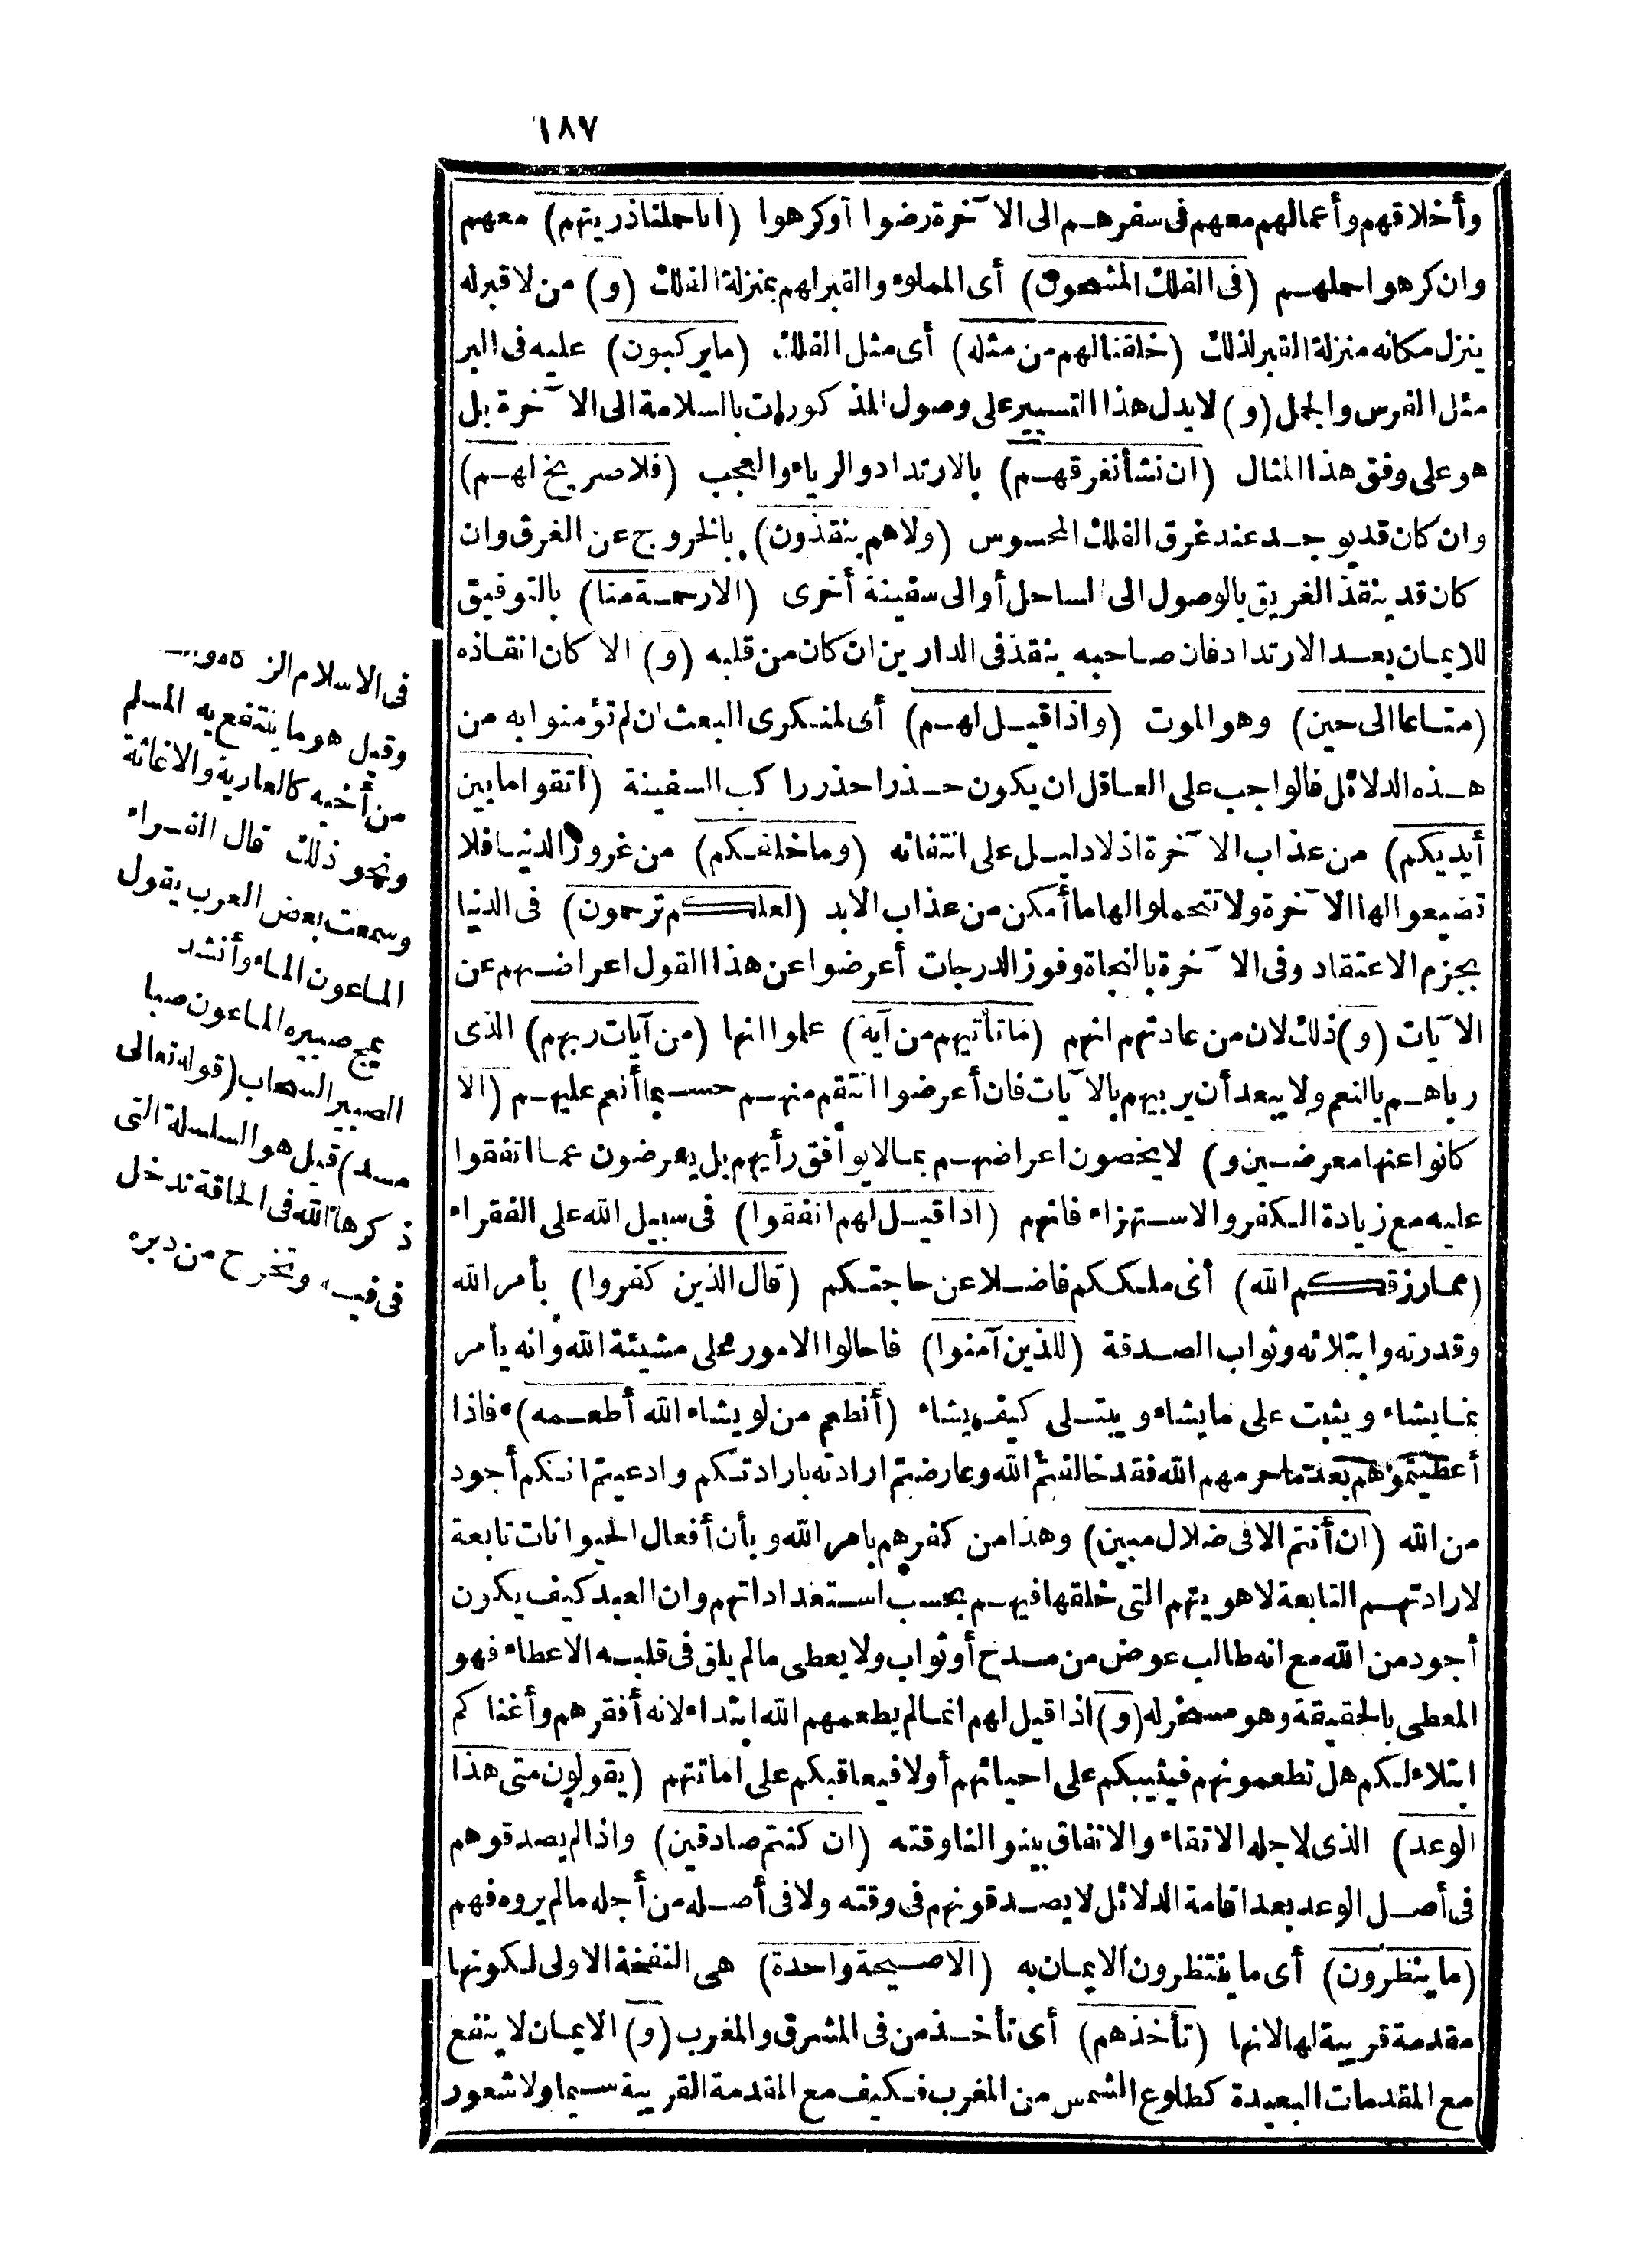 ١٨٧
وأخلاقهم وأعمالهم معهم فى سفرهم الى الآخرة رضوا أوكرهوا (أنا حملنا ذريتهم) معهم
وان كرهوا حملهم (فى الفلك المشحون) أى المملوء والقبر لهم بمنزلة الفلك (و) من لا قبر له
ينزل مكانه منزلة القبر لذلك (خلقنا لهم من مثله) أى مثل الفلك (ما يركبون) عليه فى البر
مثل الفرس والجمل (و) لا يدل هذا التسيير على وصول المذكورات بالسلامة الى الآخرة بل
هو على وفق هذا المثال (ان نشأ نغرقهم) بالارتداد والرياء والعجب (فلا صريخ لهم)
وان كان قد يوجد عند غرق الفلك المحسوس (ولا هم ينقذون) بالخروج عن الغرق وان
كان قد ينقذ الغريق بالوصول الى الساحل أو الى سفينة أخرى (الا رحمة منا) بالتوفيق
للايمان بعد الارتداد فان صاحبه ينقذ فى الدارين ان كان من قلبه (و) الا كان انقاذه
(متاعا الى حين) وهو الموت (واذا قيل لهم) أى لمنكرى البعث ان لم تؤمنوا به من
هذه الدلائل فالواجب على العاقل ان يكون حذرا حذر راكب السفينة (اتقوا ما بين
أيديكم) من عذاب الآخرة اذ لا دليل على انتفائه (وما خلفكم) من غرور الدنيا فلا
تضيعوا لها الآخرة ولا تتحملوا لها ما أمكن من عذاب الابد (لعلكم ترحمون) فى الدنيا
بجزم الاعتقاد وفى الآخرة بالنجاة وفوز الدرجات أعرضوا عن هذا القول اعراضهم عن
الآيات (و) ذلك لان من عادتهم انهم (ما تأتيهم من آية) علموا انها (من آيات ربهم) الذى
رباهم بالنعم ولا يبعد أن يربيهم بالآيات فان أعرضوا انتقم منهم حسبما أنعم عليهم (الا
كانوا عنها معرضين و) لا يخصون اعراضهم بما لا يوافق رأيهم بل يعرضون عما اتفقوا
عليه مع زيادة الكفر والاستهزاء فانهم (اذا قيل لهم انفقوا) فى سبيل الله على الفقراء
(مما رزقكم الله) أى ملككم فاضلا عن حاجتكم (قال الذين كفروا) بأمر الله
وقدرته وابتلائه وثواب الصدقة (للذين آمنوا) فاحالوا الامور على مشيئة الله وانه يأمر
بما يشاء ويثبت على ما يشاء ويبتلى كيف يشاء (أنطعم من لو يشاء الله أطعمه) فاذا
أعطيتموهم بعد ما حرمهم الله فقد خالفتم الله وعارضتم ارادته بارادتكم وادعيتم انكم أجود
من الله (ان أنتم الا فى ضلال مبين) وهذا من كفرهم بامر الله وبأن أفعال الحيوانات تابعة
لارادتهم التابعة لاهويتهم التى خلقها فيهم بحسب استعداداتهم وان العبد كيف يكون
أجود من الله مع انه طالب عوض من مدح أو ثواب ولا يعطى ما لم يلق فى قلبه الاعطاء فهو
المعطى بالحقيقة وهو مسخر له (و) اذا قيل لهم انما لم يطعمهم الله ابتداء لانه أفقرهم وأغناكم
ابتلاء لكم هل تطعمونهم فيثيبكم على احيائهم أولا فيعاقبكم على اماتتهم (يقولون متى هذا
الوعد) الذى لاجله الاتقاء والانفاق بينوا لنا وقته (ان كنتم صادقين) واذا لم يصدقوهم
فى أصل الوعد بعد اقامة الدلائل لا يصدقونهم فى وقته ولا فى أصله من أجله ما لم يروه فهم
(ما ينظرون) أى ما ينتظرون الايمان به (الا صيحة واحدة) هى النفخة الاولى لكونها
مقدمة قريبة لها لانها (تأخذهم) أى تأخذ من فى المشرق والمغرب (و) الايمان لا ينفع
مع المقدمات البعيدة كطلوع الشمس من المغرب فكيف مع المقدمة القريبة سيما ولا شعور
فى الاسلام الز
وقيل هو ما ينتفع به المسلم
من أخيه كالعارية والاغاثة
ونحو ذلك قال الفراء
وسمعت بعض العرب يقول
الماعون الماء وأنشد
يمج صبيره الماعون صبا
الصبير السحاب (قوله تعالى
مسد) قيل هو السلسلة التى
ذكرها الله فى الحاقة تدخل
فى فيه وتخرج من دبره